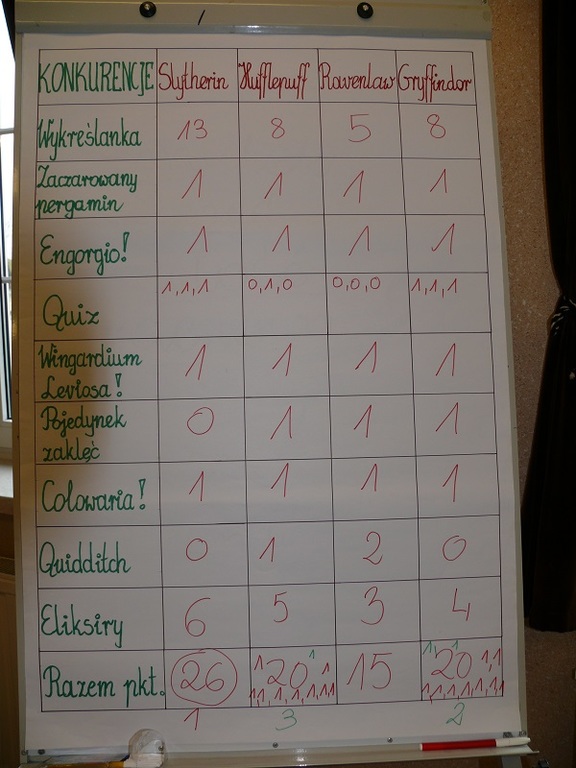 KONKURENCJE Slytherin Hufflepuff Ravenlaw Gryffindor
Wykreślanka 13 8 5 8
Zaczarowany
pergamin 1 1 1 1
Engorgio! 1 1 1 1
Quiz 1,1,1 0,1,0 0,0,0 1,1,1
Wingardium
Leviosa! 1 1 1 1
Pojedynek
zaklęć 0 1 1 1
Colowaria! 1 1 1 1
Quidditch 0 1 2 0
Eliksiry 6 5 3 4
Razem pkt. 26 20 15 20
1 3 2